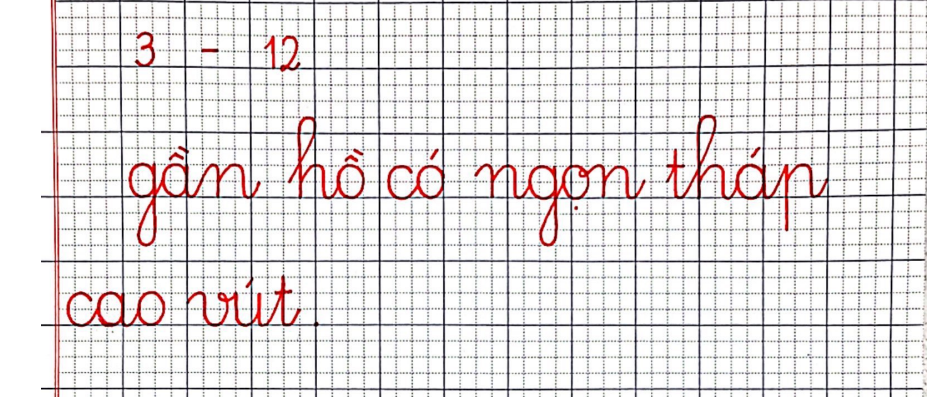 3 - 12
gần hồ có ngọn tháp
cao vút.